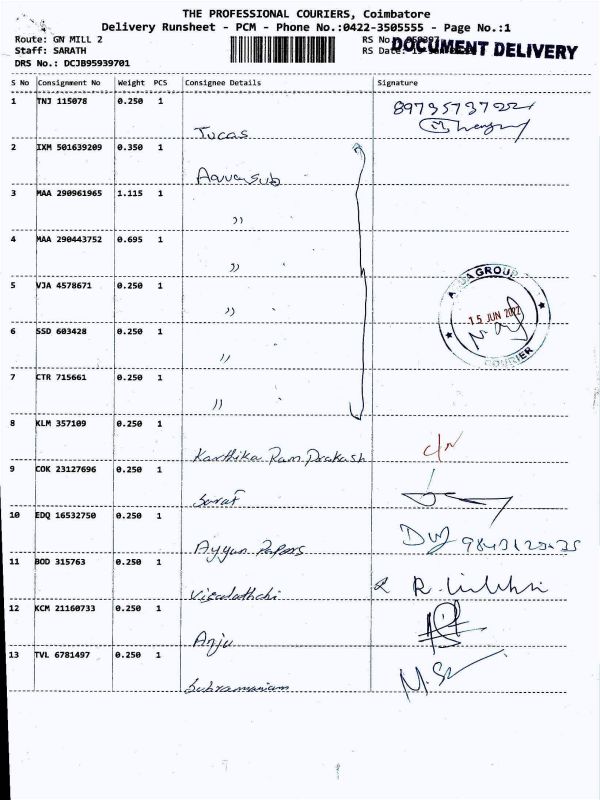 THE PROFESSIONAL COURIERS, Coimbatore
Delivery Runsheet - PCM - Phone No.:0422-3505555 - Page No.:1
Route: GN MILL 2
RS No
Staff: SARATH
RS Date:
DOCUMENT DELIVERY
DRS No.: DCJB95939701
S No Consignment No Weight PCS Consignee Details Signature
1 TNJ 115078 0.250 1
Tucas
2 IXM 501639209 0.350 1
3 MAA 290961965 1.115 1
"
4 MAA 290443752 0.695 1
"
5 VJA 4578671 0.250 1
"
A GROUP
15 JUN 2022
COURIER
6 SSD 603428 0.250 1
"
7 CTR 715661 0.250 1
"
8 KLM 357109 0.250 1
Karthika Ram Prakash
9 COK 23127696 0.250 1
Saraf
10 EDQ 16532750 0.250 1
Ayyan Papers
11 BOD 315763 0.250 1
Visalathchi
12 KCM 21160733 0.250 1
Anju
13 TVL 6781497 0.250 1
Subramaniam